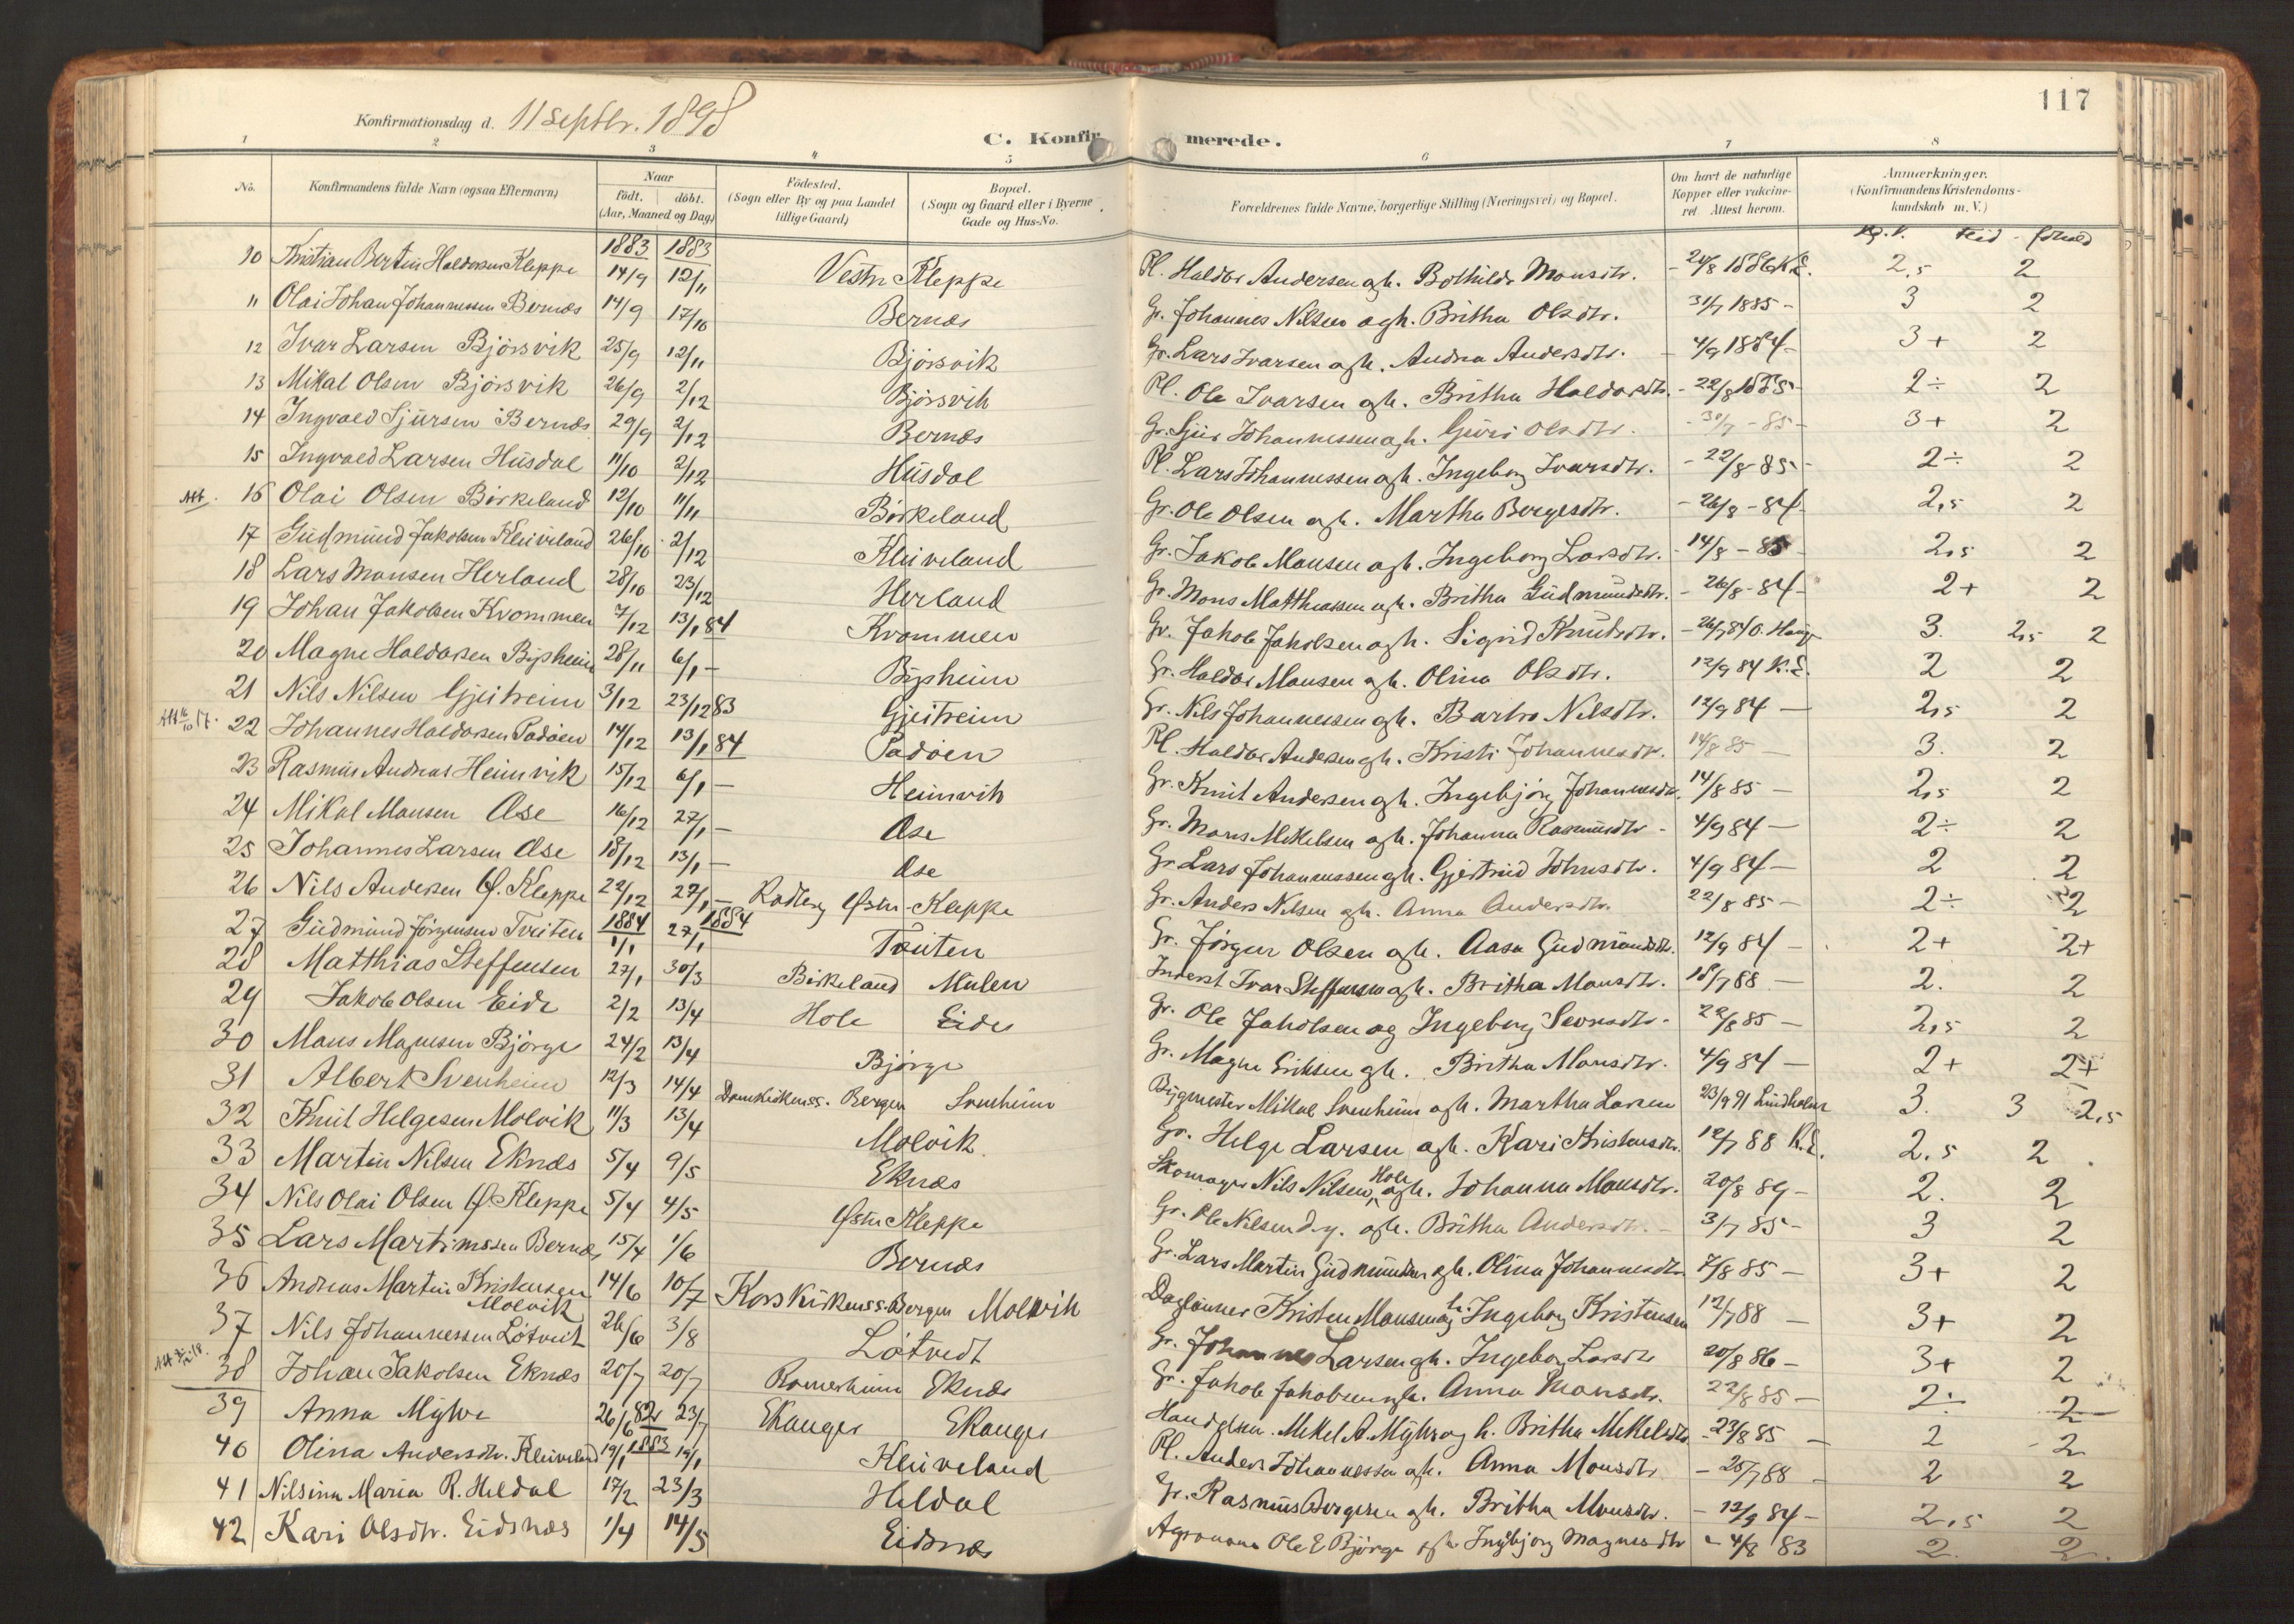 117
Konfirmationsdag d. 11 septbr. 1898
C. Konfirmerede.
1 2 3 4 5 6 7 8
No. Konfirmandens fulde Navn (ogsaa Efternavn) Naar født. døbt. (Aar, Maaned og Dag) Fødested. (Sogn eller By og paa Landet tillige Gaard) Bopæl. (Sogn og Gaard eller i Byerne Gade og Hus-No. Forældrenes fulde Navne, borgerlige Stilling (Næringsvei) og Bopæl. Om havt de naturlige Kopper eller vakcineret Attest herom. Anmærkninger. (Konfirmandens Kristendomskundskab m. V.)
1883 1883
10 Kristian Bertin Haldorsen Kleppe 14/9 12/11 Vestre Kleppe Pl. Haldor Andersen og h. Bothilda Monsdtr. - 24/8 1886 K.E. 2,5 2
11 Olai Johan Johannessen Bernæs 14/9 17/10 Bernæs Gr. Johannes Nilsen og h. Britha Olsdtr. 31/7 1885 - 3 2
12 Ivar Larsen Bjørsvik 25/9 12/11 Bjørsvik Gr. Lars Ivarsen og h. Andrea Andersdtr. - 4/9 1884 - 3+ 2
13 Mikal Olsen Bjørsvik 26/9 2/12 Bjørsvik Pl. Ole Ivarsen og h. Britha Haldorsdtr. - 22/8 1885 - 2÷ 2
14 Ingvald Sjursen Bernæs 29/9 2/12 Bernæs Gr. Sjur Johannessen og h. Guri Olsdtr. - 31/7 - 85 - 3+ 2
15 Ingvald Larsen Husdal 11/10 2/12 Husdal Pl. Lars Johannessen og h. Ingeborg Ivarsdtr. - 22/8 - 85 - 2÷ 2
Att. 16 Olai Olsen Birkeland 12/10 11/11 Birkeland Gr. Ole Olsen og h. Martha Børgesdtr. - 26/8 - 84 - 2,5 2
17 Gudmund Jakobsen Kleiveland 26/10 2/12 Kleiveland Gr. Jakob Monsen og h. Ingeborg Larsdtr. - 14/8 - 85 - 2,5 2
18 Lars Monsen Herland 28/10 23/12 Herland Gr. Mons Matthiassen og h. Britha Gudmundsdtr. - 26/8 - 84 - 2+ 2
19 Johan Jakobsen Kvommen 7/12 13/1 84 Kvommen Gr. Jakob Jakobsen og h. Sigrid Knutsdtr. - 26/7 84 O. Hauge 3. 2,5 2
20 Magne Haldorsen Bysheim 28/11 6/1 - Bysheim Gr. Haldor Monsen og h. Olina Olsdtr. 12/9 84 K.E. 2 2
21 Nils Nilsen Gjeitreim 3/12 23/12 83 Gjeitreim Gr. Nils Johannessen og h. Barbro Nilsdtr. 12/9 84 - 2,5 2
22 Johannes Haldorsen Padøen 14/12 13/1 84 Padøen Pl. Haldor Andersen og h. Kristi Johannesdtr. 14/8 85 - 3. 2
23 Rasmus Andreas Heimvik 15/12 6/1 - Heimvik Gr. Knut Andersen og h. Ingebjørg Johannesdtr. 14/8 85 - 2,5 2
24 Mikal Monsen Åse 16/12 27/1 - Åse Gr. Mons Mikkelsen og h. Johanna Rasmusdtr. - 4/9 84 - 2÷ 2
25 Johannes Larsen Åse 18/12 13/1 - Åse Gr. Lars Johannessen og h. Gjertrud Johnsdtr. 4/9 84 - 2 2
26 Nils Andersen Ø. Kleppe 22/12 27/1 - Rødberg Østre Kleppe Gr. Anders Nilsen og h. Anna Andersdtr. 22/8 85 - 2÷ 2
1884 1884
27 Gudmund Jørgensen Tveiten 1/1 27/1 Tveiten Gr. Jørgen Olsen og h. Aasa Gudmundsdtr. 12/9 84 - 2+ 2+
28 Matthias Steffensen 27/1 30/3 Birkeland Mulen Inderst Ivar Steffensen og h. Britha Monsdtr. 18/7 88 - 2. 2
29 Jakob Olsen Eide 2/2 13/4 Hole Eide Gr. Ole Jakobsen og Ingeborg Sjursdtr. 22/8 85 - 2,5 2
30 Mons Magnesen Bjørge 24/2 13/4 Bjørge Gr. Magne Eriksen og h. Britha Monsdtr. 4/9 84 - 2+ 2+
31 Albert Svenheim 12/3 14/4 Domkirkens s. Bergen Svenheim Bygmester Mikal Svenheim og h. Martha Larsen 23/9 91 Lindholm 3. 3 2,5
32 Knut Helgesen Molvik 11/3 13/4 Molvik Gr. Helge Larsen og h. Kari Kristensdtr. 12/7 88 K.E. 2,5 2
33 Martin Nilsen Eknæs 5/4 9/5 Eknæs Skomager Nils Nilsen Hole og h. Johanna Monsdtr. 20/8 89 - 2. 2
34 Nils Olai Olsen Ø. Kleppe 5/4 4/5 Østre Kleppe Gr. Ole Nilsen d.y. og h. Britha Andersdtr. - 3/7 85 - 3 2
35 Lars Martinssen Bernæs 15/4 1/6 Bernæs Gr. Lars Martin Gudmundsen og h. Olina Johannesdtr. 7/8 85 - 3+ 2
36 Andreas Martin Kristensen Molvik 14/6 10/7 Korskirkens s. Bergen Molvik Dagløner Kristen Monsen og h. Ingeborg Kristensen 12/7 88 - 3+ 2
37 Nils Johannessen Løtveit 26/6 3/8 Løtvedt Gr. Johannes Larsen og h. Ingeborg Larsdtr 20/8 86 - 3+ 2
38 Johan Jakobsen Eknæs 20/7 20/7 Romerheim Eknæs Gr. Jakob Jakobsen og h. Anna Monsdtr. 22/8 85 - 2÷ 2
39 Anna Myhre 26/6 82 23/7 Ekanger Ekanger Handelsm. Mikel A. Myhre og h. Britha Mikkelsdtr. - 23/8 85 - 2 2
40 Olina Andersdtr. Kleiveland 19/1 1883 19/1 Kleiveland Pl. Anders Johannessen og h. Anna Monsdtr. - 25/7 88 - 2 2
41 Nilsina Maria R. Heldal 17/2 23/3 Heldal Gr. Rasmus Børgesen og h. Britha Monsdtr. - 12/9 84 - 2,5 2
42 Kari Olsdtr. Eidsnæs 1/4 14/5 Eidsnæs Agronom Ole E Bjørge og h. Ingebjørg Magnesdtr - 4/8 83 2. 2.